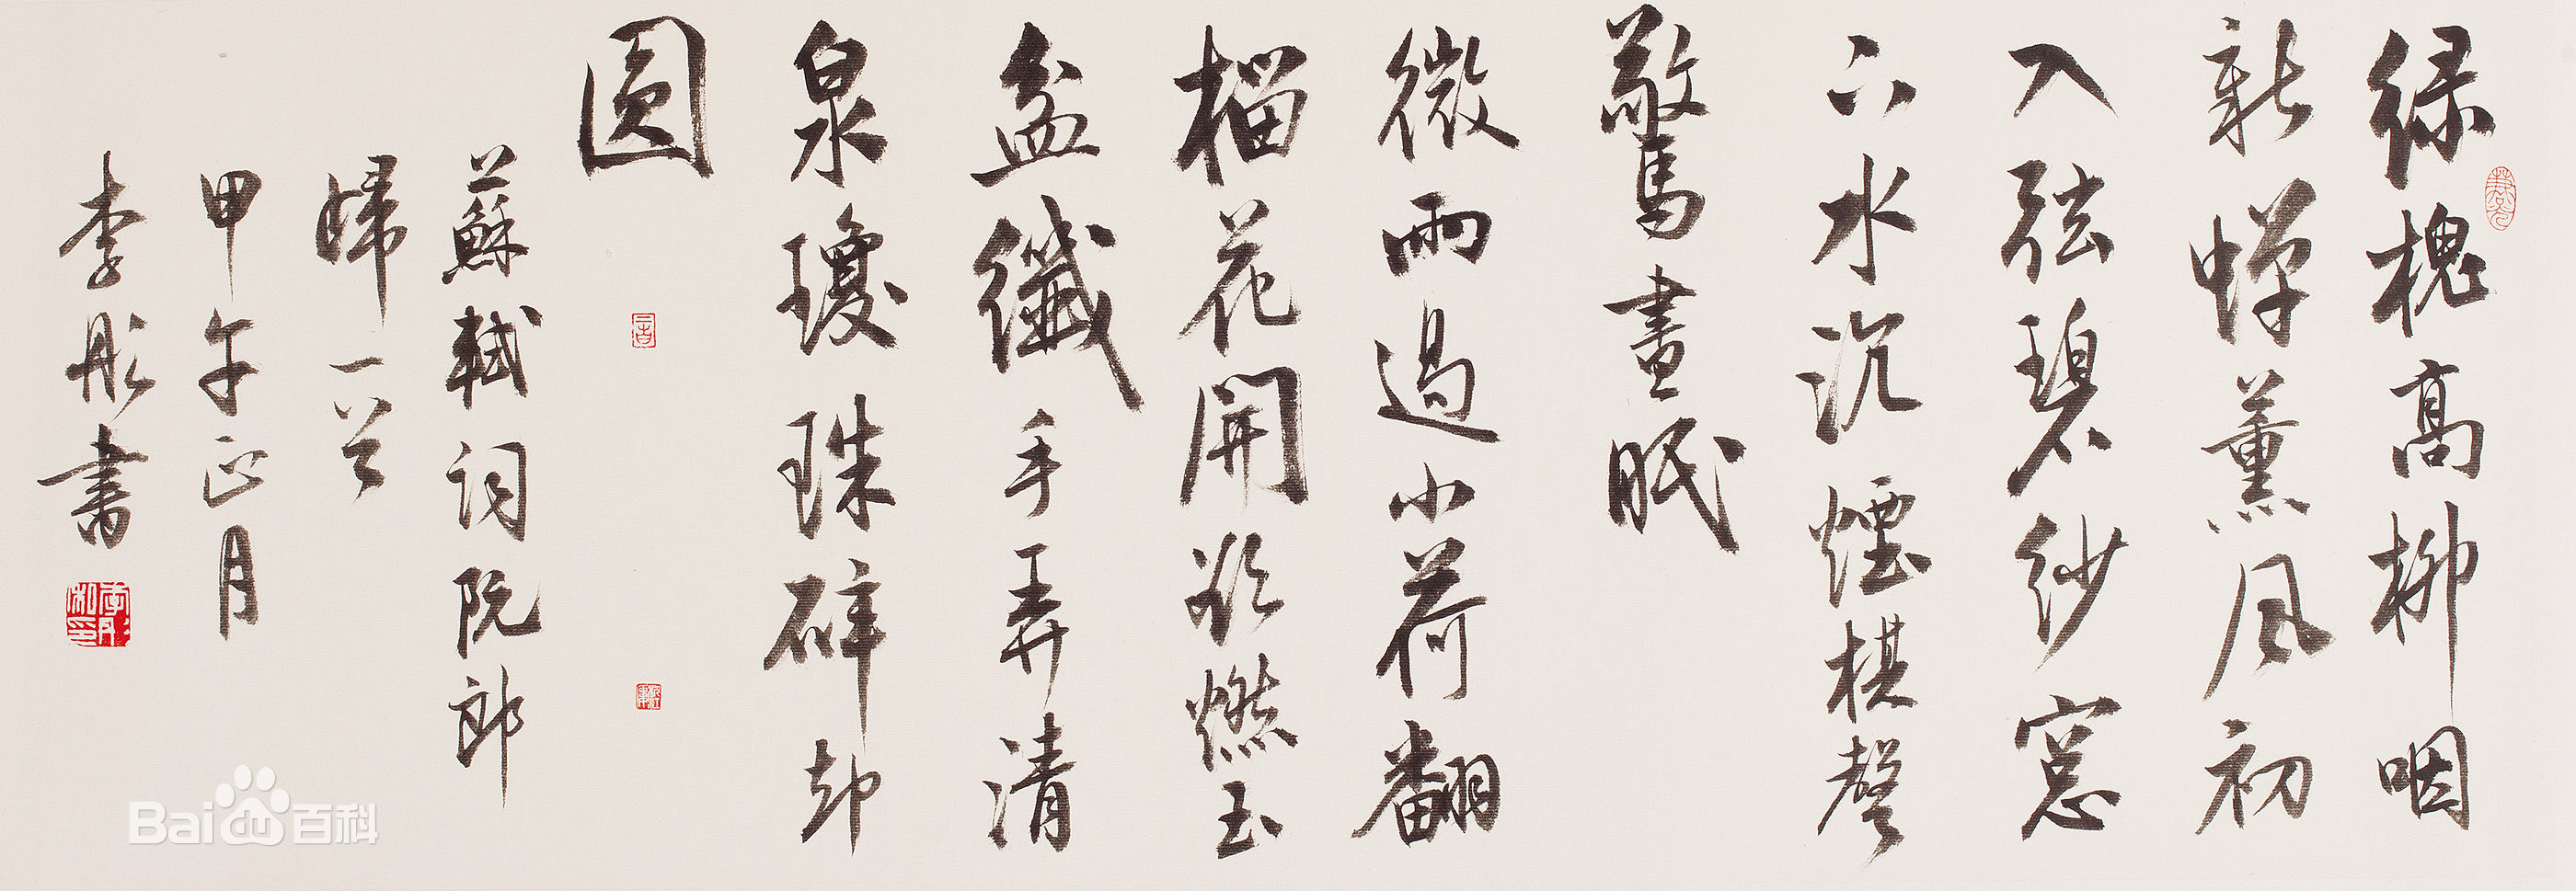 绿槐高柳咽
新蝉薰风初
入弦碧纱窓
下水沉煙棋聲
驚晝眠
微雨過小荷翻
榴花開欲燃玉
盆纖手弄清
泉瓊珠碎却
圓
蘇軾词阮郎
歸一首
甲午正月
李彤書
Bai百科